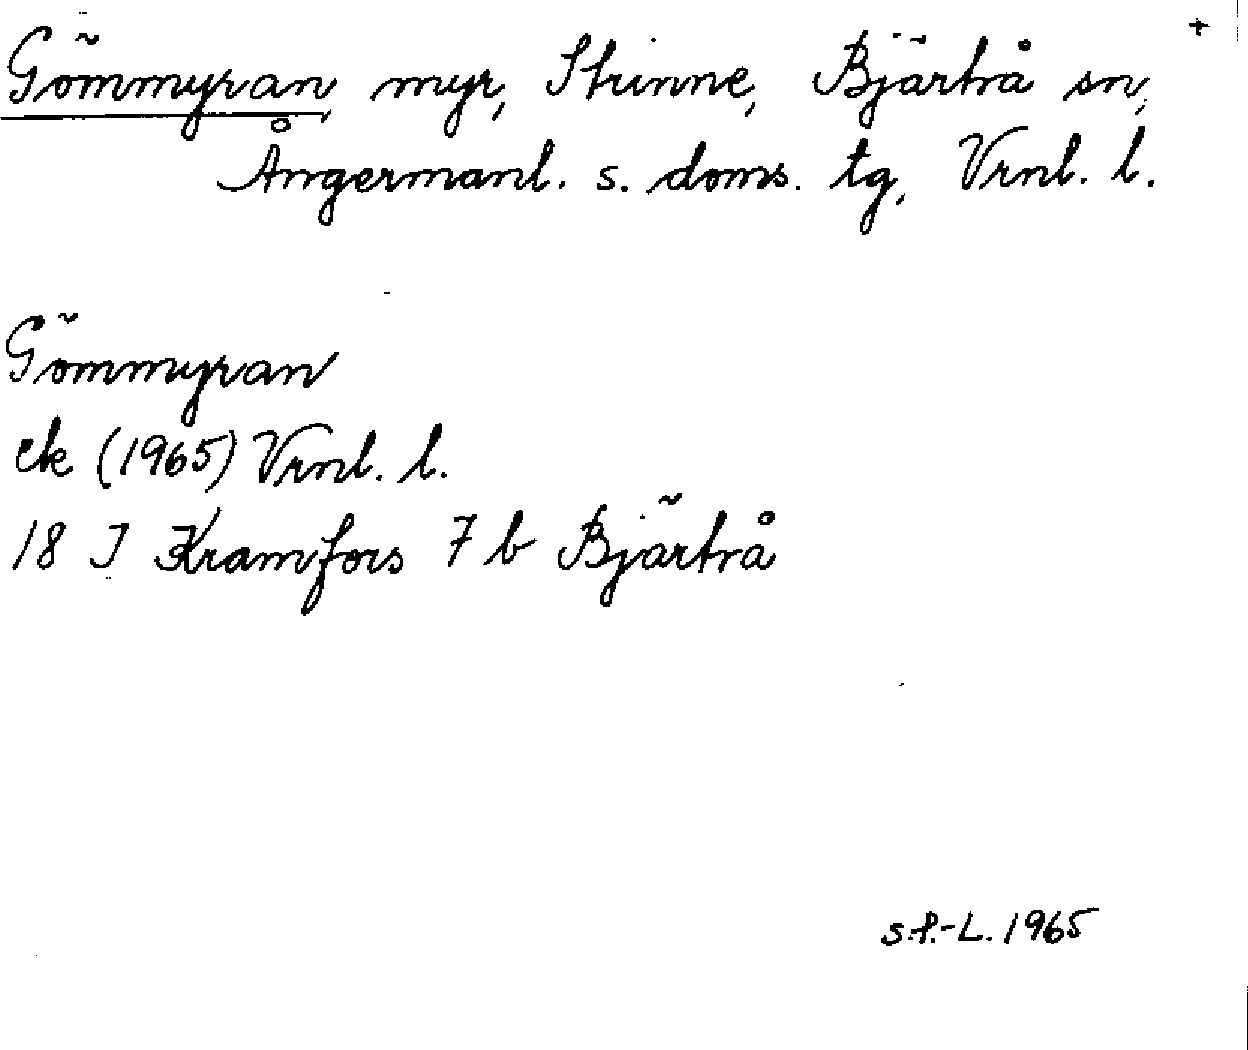 +
Gömmyran myr, Strinne, Bjärtrå sn,
Ångermanl. s. doms. tg, Vrnl. l.
Gömmyran
ek (1965) Vrnl. l.
18 I Kramfors 7 b Bjärtrå
s.f.-L. 1965